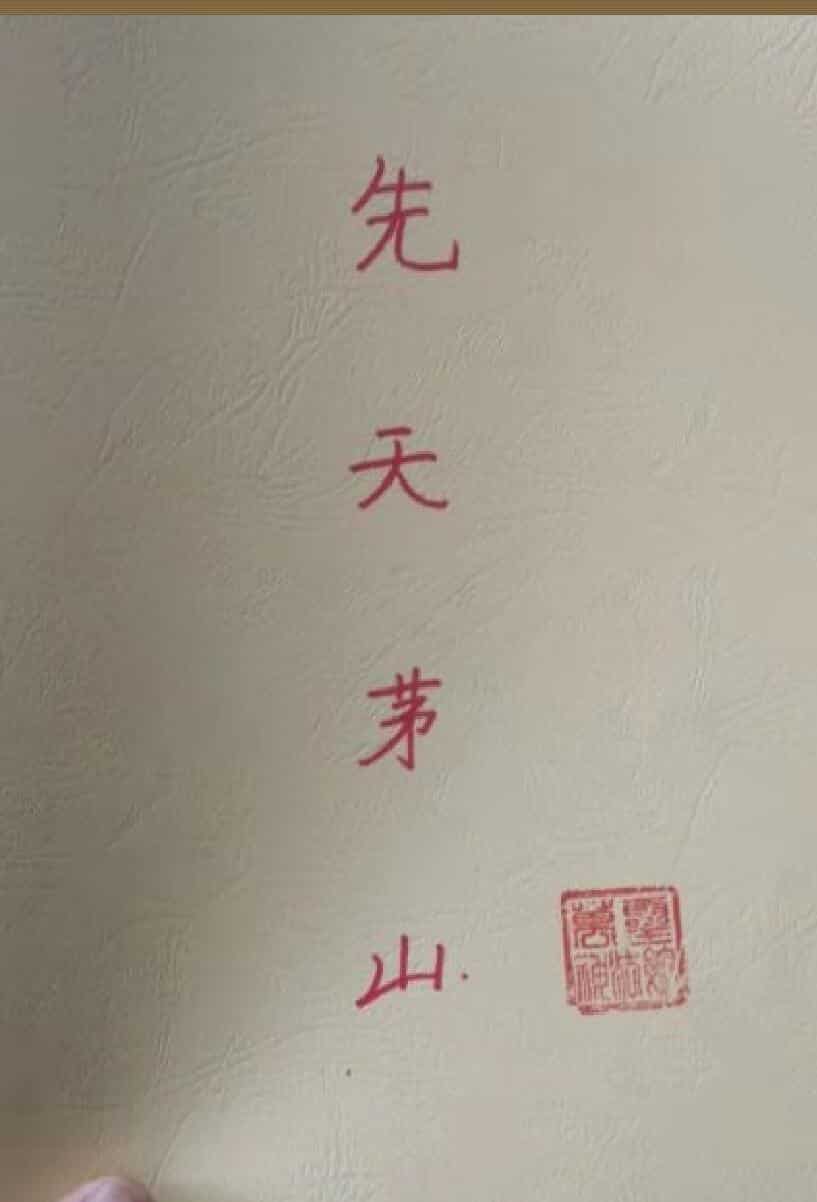 先天茅山